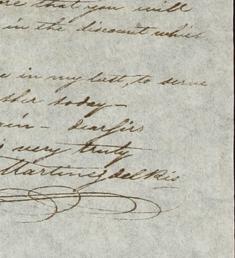 that you will
in the discount which
in my last, to serve
today -
- dear sirs
very truly
Martinez del Rio